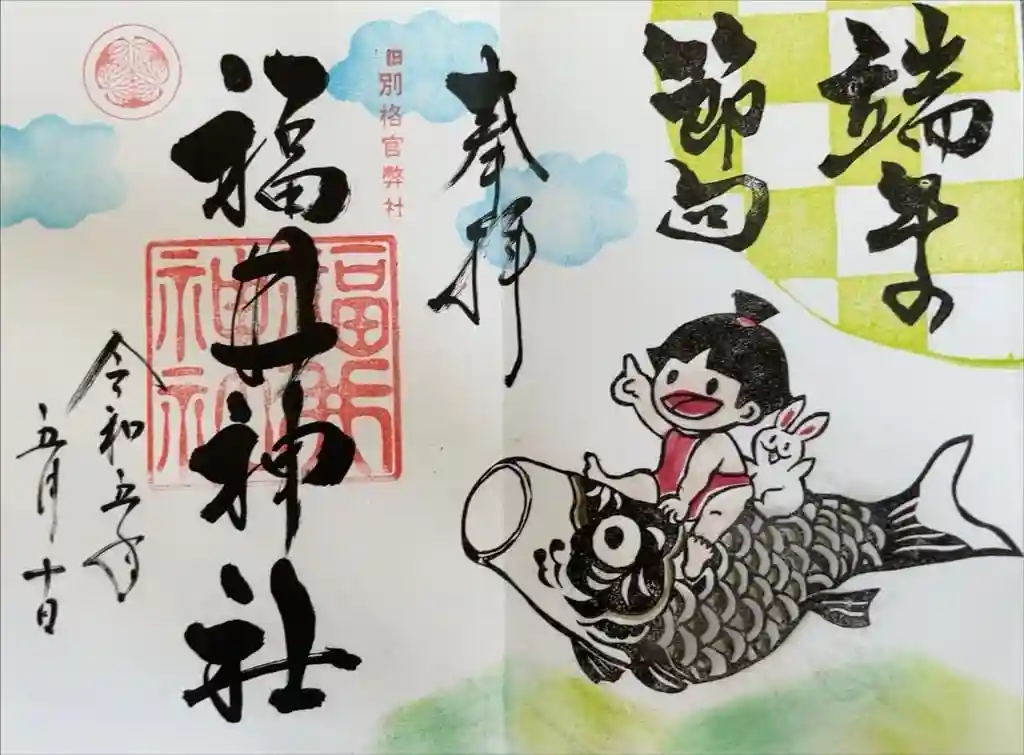 端午の
節句
奉拝
旧別格官弊社
福井神社
福井
神社
令和五年
五月十日